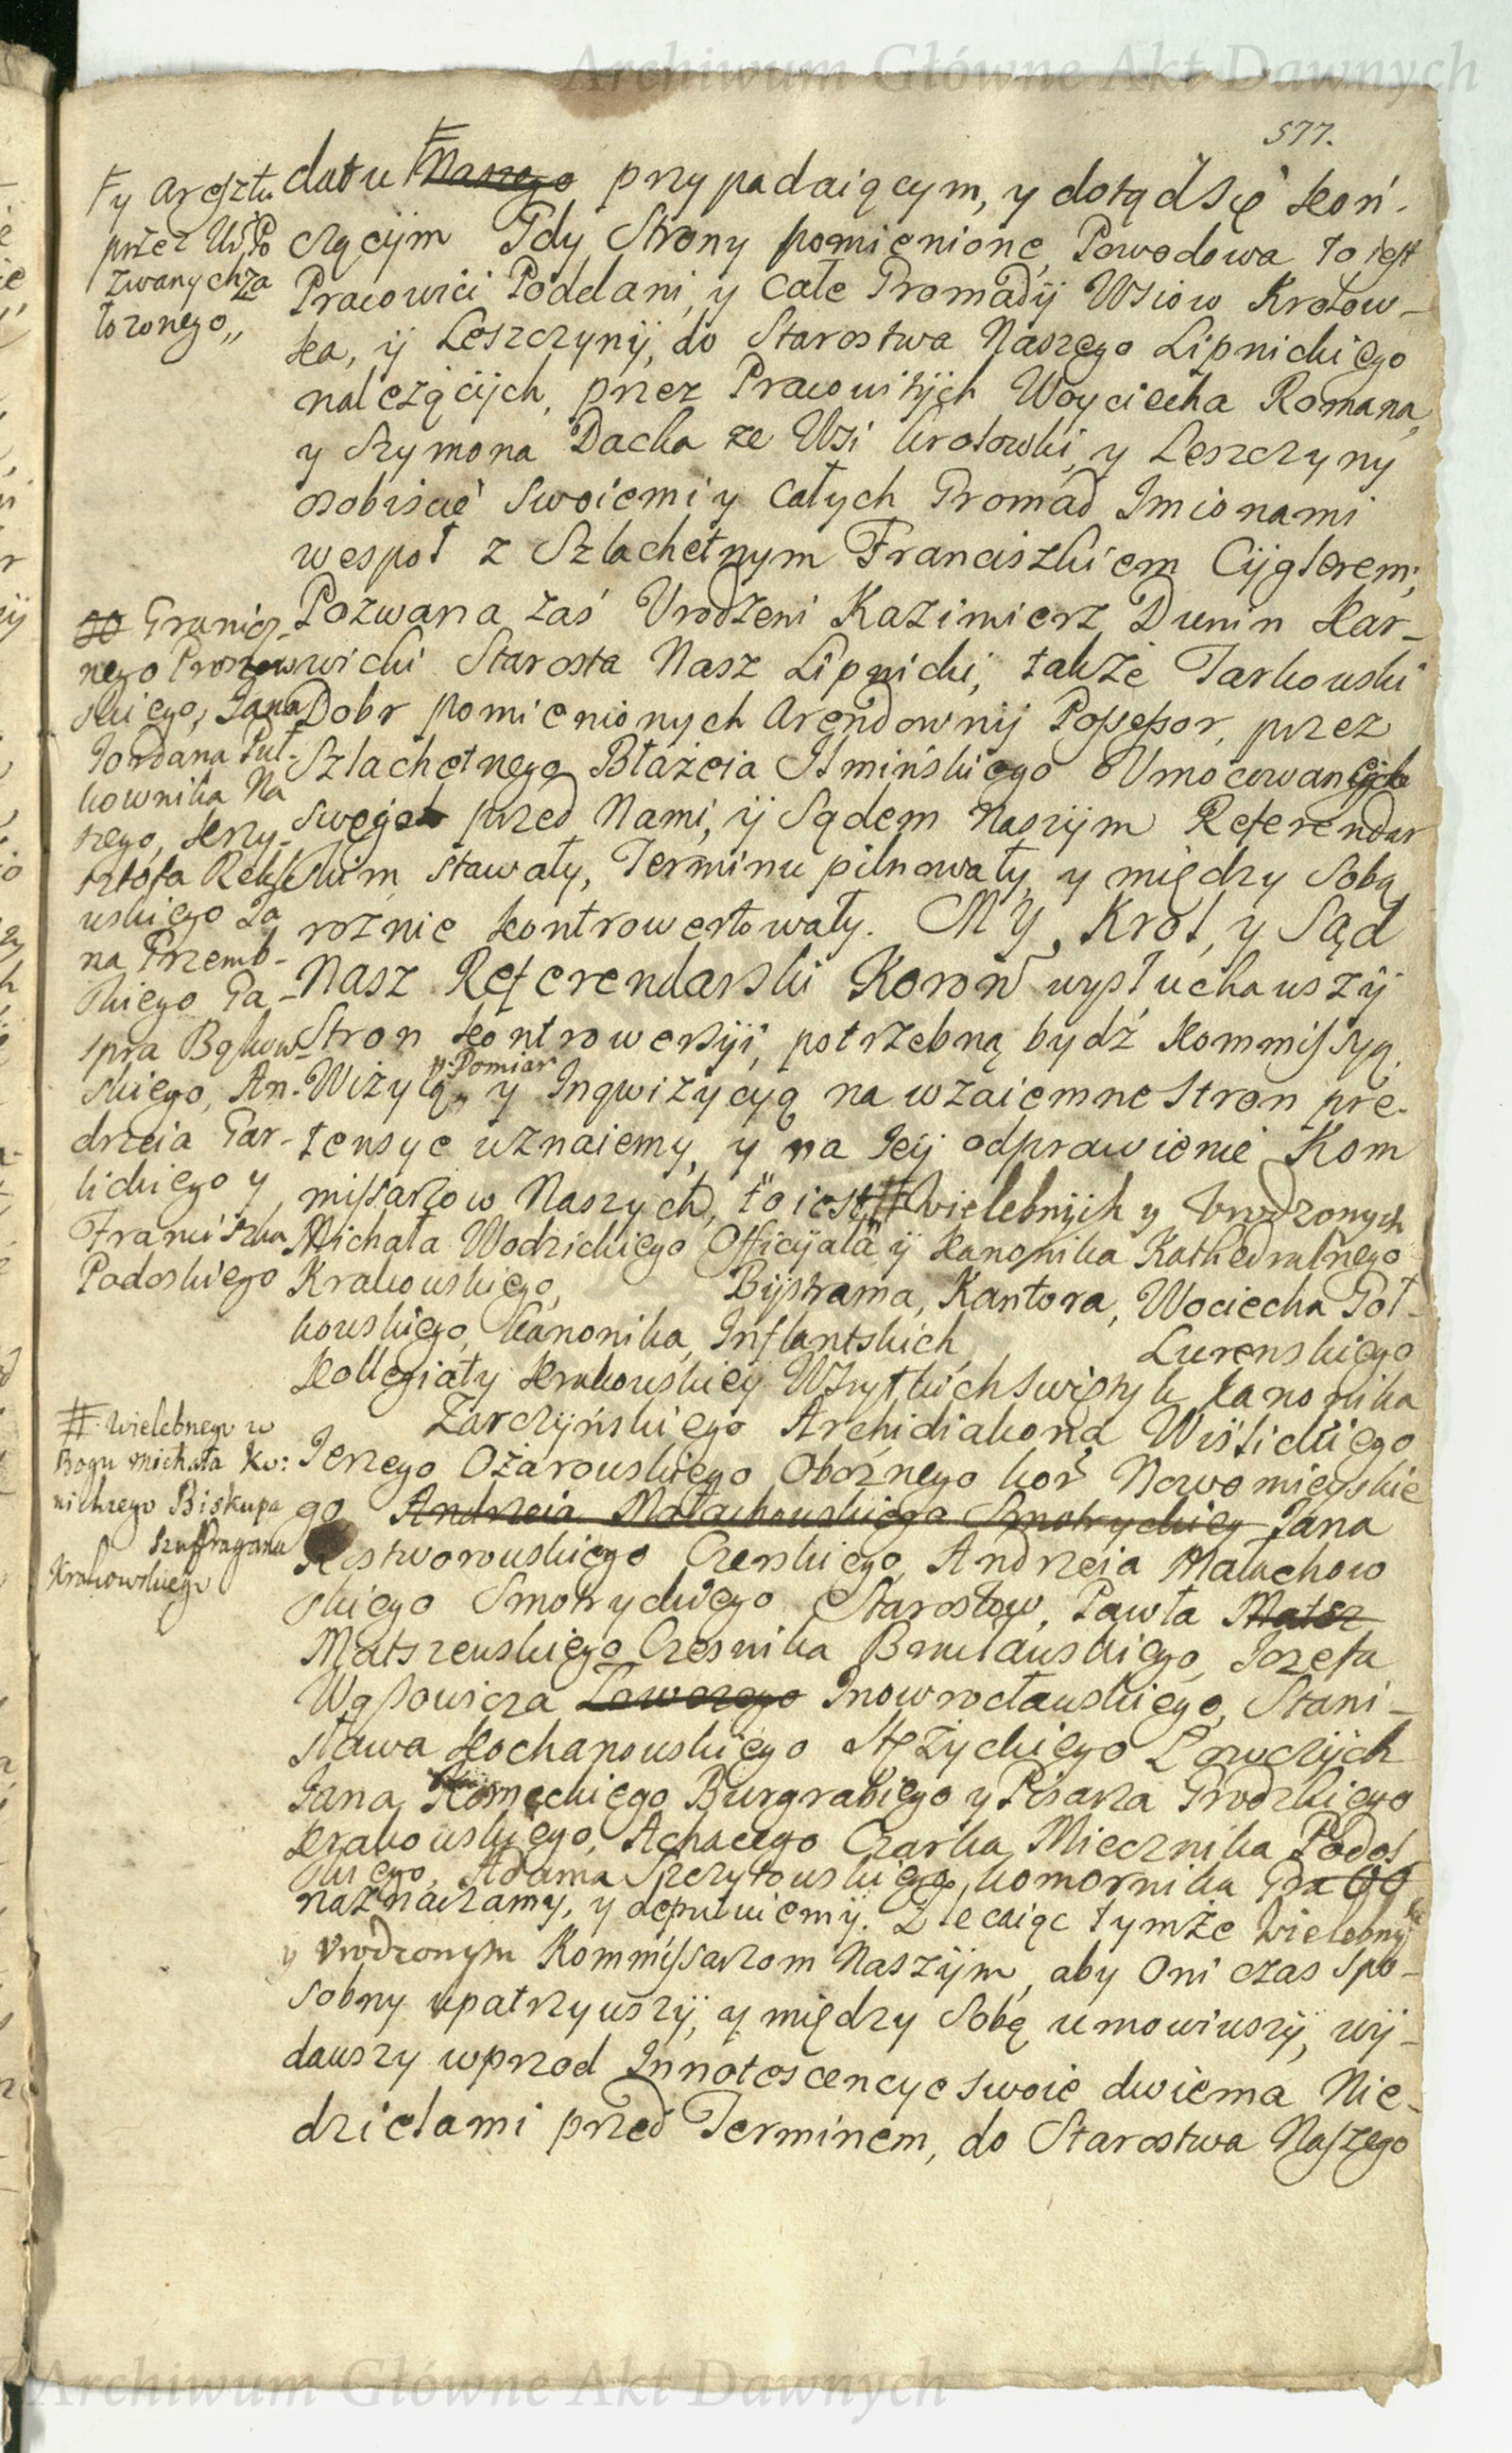 Archiwum Główne Akt Dawnych
577.
datu Naszego przypadaiącym, y dotąd Się koń-
czącÿm Gdy Strony pomienione Powodowa to iest
Pracowici Poddani, y całe Gromadÿ Wsiow Krolow-
ka, ÿ Leszczynÿ, do Starostwa Naszego Lipnickiego
należącÿch, przez Pracowitÿch Woyciecha Romana,
y Szymona Dacha ze Wsi Krolowki, y Leszczyny
osobiscie Swoiemi y Całych Gromad Imionami
wespoł z Szlachetnym Franciszkiem Cÿglerem;
Pozwana zaś Urodzeni Kazimierz Dunin Kar-
wicki Starosta Nasz Lipnicki, także Tarkowski
Dobr pomienionych Arendownÿ Possessor, przez
Szlachetnego Błażeia Ilmińskiego Umocowanych
swego przed Nami, ÿ Sądem Naszÿm Referendar
skim stawały, Terminu pilnowały, y między Sobą
roznie kontrowertowały. MY, Krol, y Sąd
Nasz Referendarski Koron wysłuchawszÿ
Stron kontrowersÿi, potrzebną bydź Kommissyą,
Wizyą, y Pomiar y Inqwizycyą na wzaiemne Stron pre-
tensye uznaiemy, y na Ieÿ odprawienie Kom
missarzow Naszych, to iest # Wielebnÿch y Urodzonych
Michała Wodzickiego Officÿała ÿ Kanonika Kathedralnego
Krakowskiego, Bÿstrama, Kantora, Wociecha Poł-
kowskiego, Kanonika, Inflantskich, Lurenskiego
Kollegiaty Krakowskiey Wszystkich Swiętych Kanonika
Zarczÿńskiego Archidiakona Wiślickiego
Ierzego Ożarowskiego Oboznego kor Nowomieyskie
go Andrzeia Małachowskiego Smotryckiey Iana
Rostworowskiego Czerskiego, Andrzeia Małachow
skiego Smotryckiego Starostow, Pawła Matsz
Matszewskiego Czesnika Bracławskiego, Iozefa
Wąsowicza Łowczego Inowrocławskiego, Stani-
sława Kochanowskiego Stężyckiego Łowczÿch
Iana Koneckiego Burgrabiego y Pisarza Grodzkiego
Krakowskiego, Achacego Czarka Miecznika Podol
skiego, Adama Szczytowskiego, komornika Gra
naznaczamy, y deputuiemÿ. Zlecaiąc tymże Wielebny
y Urodzonym Kommissarzom Naszÿm, aby Oni czas spo-
sobny upatrzywszÿ, y między Sobą umowiwszÿ, wÿ-
dawszy wprzod Innotescencye swoie dwiema Nie-
dzielami przed Terminem, do Starostwa Naszego
y Aresztu
przez Us Po
zwanych za
łożonego,,
Granicz-
nego Proszow
skiego, Iana
Iordana Puł-
kownika Na
szego, Krzy-
sztofa Rek
uskiego Ia
na Przemb-
skiego Ga-
spra Bąkow-
skiego, An-
drzeia Gar-
lickiego y
Franciszka
Padoskiego
# Wielebnego w
Bogu Michała Ku:
nickiego Biskupa
Szuffragana
Krakowskiego
Archiwum Główne Akt Dawnych